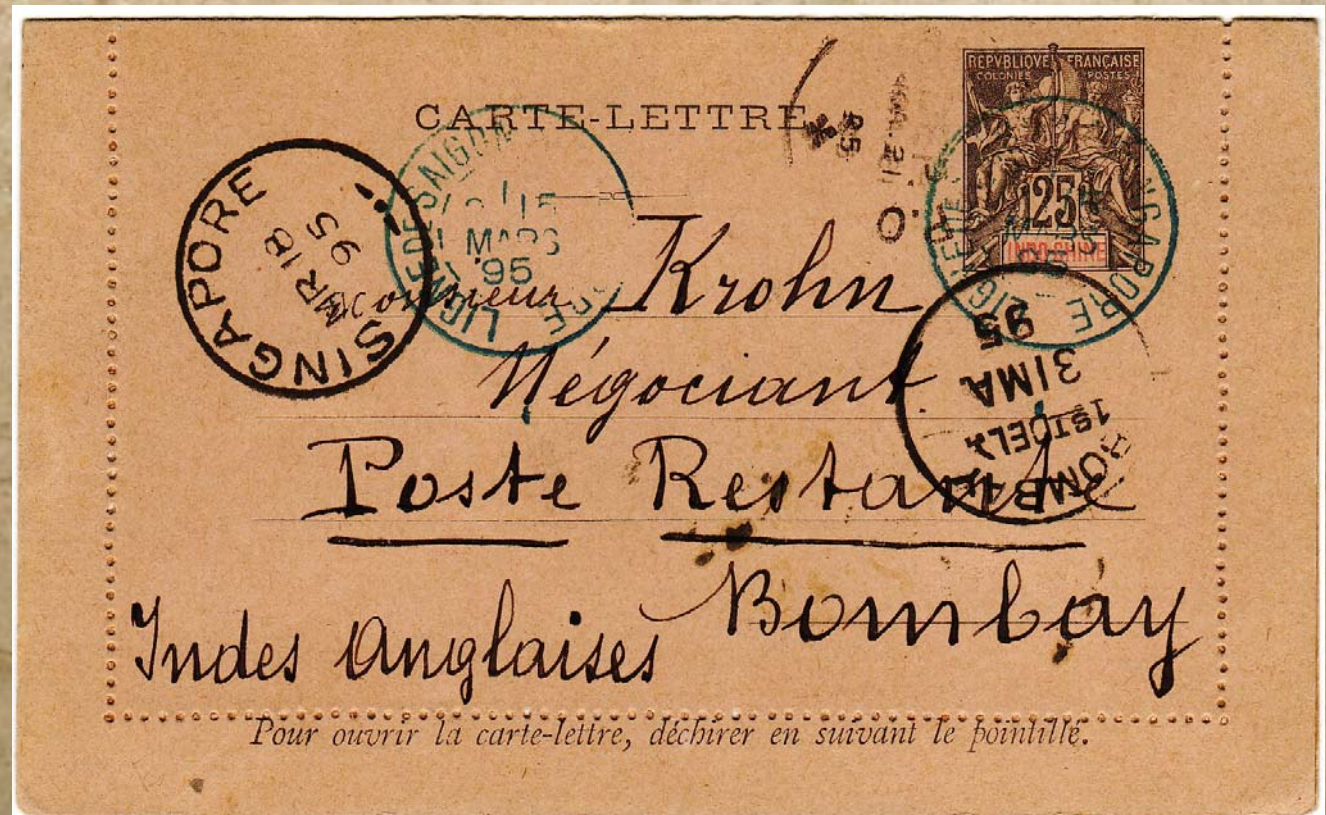 REPVBLIQVE FRANÇAISE
COLONIES POSTES
25
INDO-CHINE
CARTE-LETTRE
SINGAPORE
MR 18
95
LIGNE DE SAIGON
MARS
95
LIGNE
NGAPORE
MARS
BOMBAY
1ST DEL
31 MA
95
Monsieur Krohn
Négociant
Poste Restante
Bombay
Indes Anglaises
Pour ouvrir la carte-lettre, déchirer en suivant le pointillé.